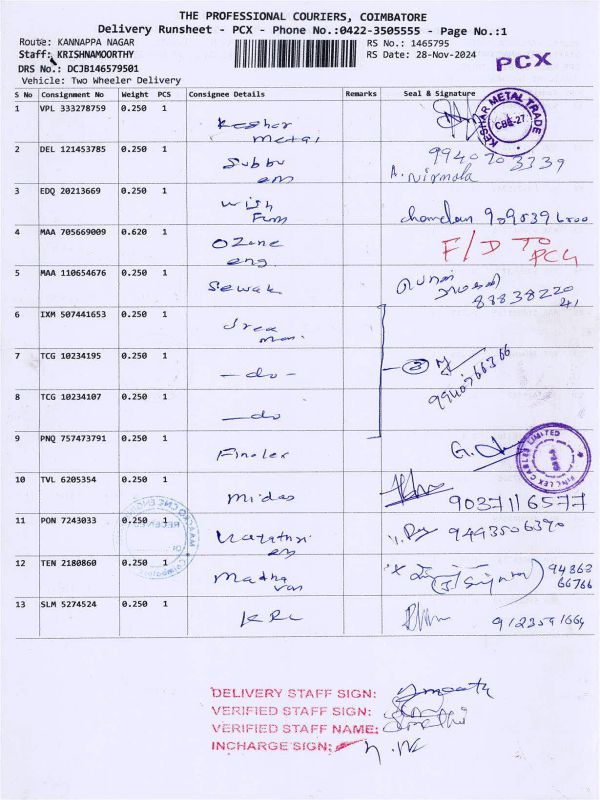 THE PROFESSIONAL COURIERS, COIMBATORE
Delivery Runsheet - PCX - Phone No.:0422-3505555 - Page No.:1
Route: KANNAPPA NAGAR
RS No.: 1465795
Staff: KRISHNAMOORTHY
RS Date: 28-Nov-2024
PCX
DRS No.: DCJB146579501
Vehicle: Two Wheeler Delivery
S No Consignment No Weight PCS Consignee Details Remarks Seal & Signature
1 VPL 333278759 0.250 1 Keshar Metal
KESHAR METAL TRADE
CBE-27
2 DEL 121453785 0.250 1 Subbu em
A. Nirmala
3 EDQ 20213669 0.250 1 Wish Fim
4 MAA 705669009 0.620 1 Ozone eng. F/D TO PCG
5 MAA 110654676 0.250 1 Sewak
6 IXM 507441653 0.250 1
7 TCG 10234195 0.250 1 -do- 3 9940766366
8 TCG 10234107 0.250 1 -do
9 PNQ 757473791 0.250 1 Finolex
LEX CABLES LIMITED
10 TVL 6205354 0.250 1 midas 9037116577
11 PON 7243033 0.250 1 9493506390
12 TEN 2180860 0.250 1 Madhavan 94863 66766
13 SLM 5274524 0.250 1 KRC 9123591664
DELIVERY STAFF SIGN:
VERIFIED STAFF SIGN:
VERIFIED STAFF NAME:
INCHARGE SIGN: